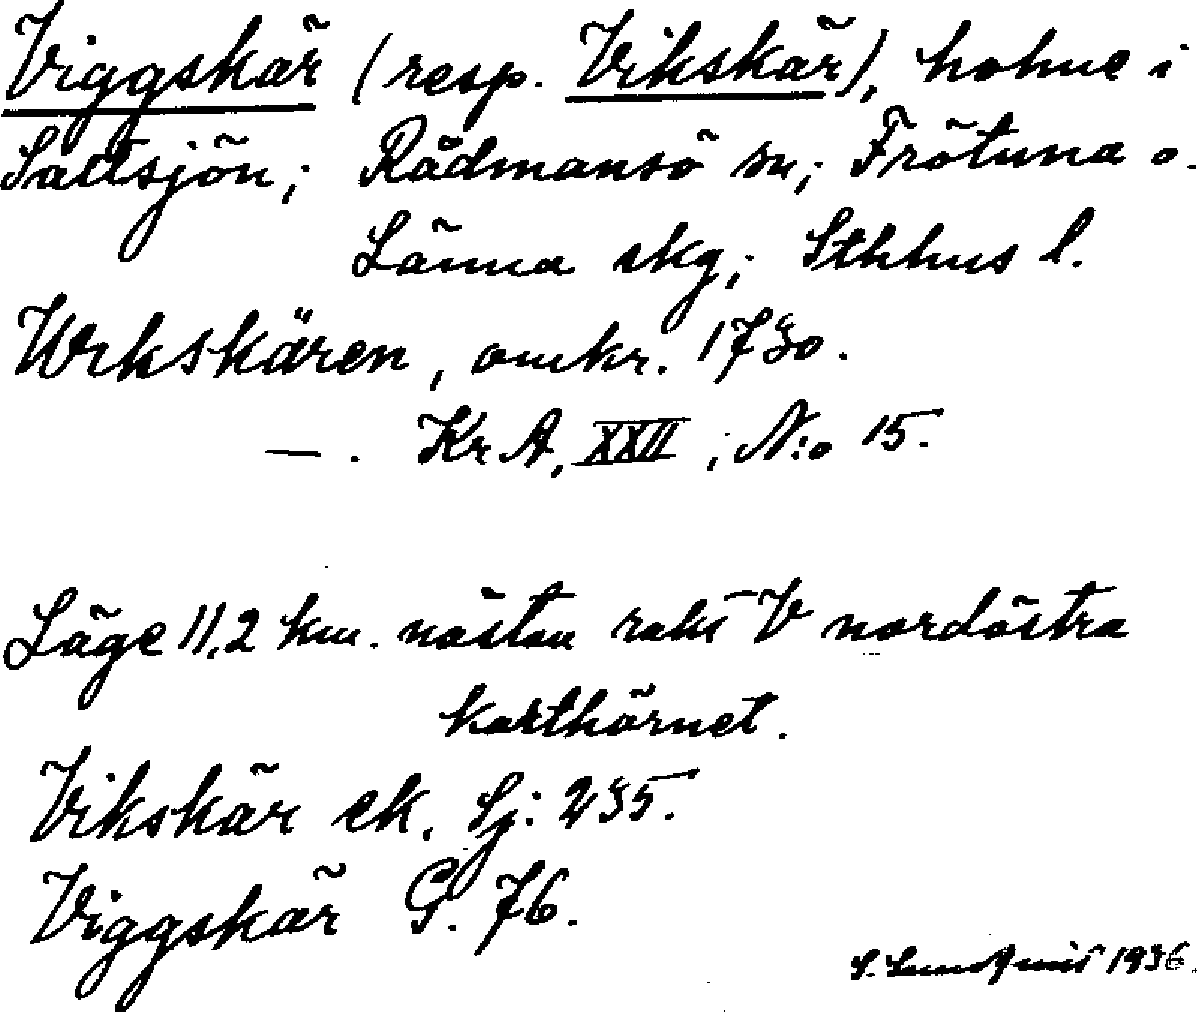 Viggskär (resp. Vikskär), holme i
Saltsjön; Rådmansö sn; Frötuna o.
Länna skg; Sthlms l.
Wikskären, omkr. 1730.
— . KrA, XXII; N:o 15.
Läge 11,2 km. nästan rakt V nordöstra
karthörnet.
Vikskär ek. Sj: 235.
Viggskär G. 76.
1936.